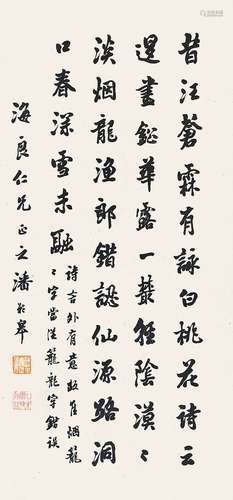 昔汪蒼霖有詠白桃花詩云
盡鉛華露一叢輕陰漠〻
淡烟龍漁郎錯認仙源路洞
口春深雪未融
詩言外有意致惟烟龍
〻字當從籠龍字錯誤
海良仁兄正之潘齡皋